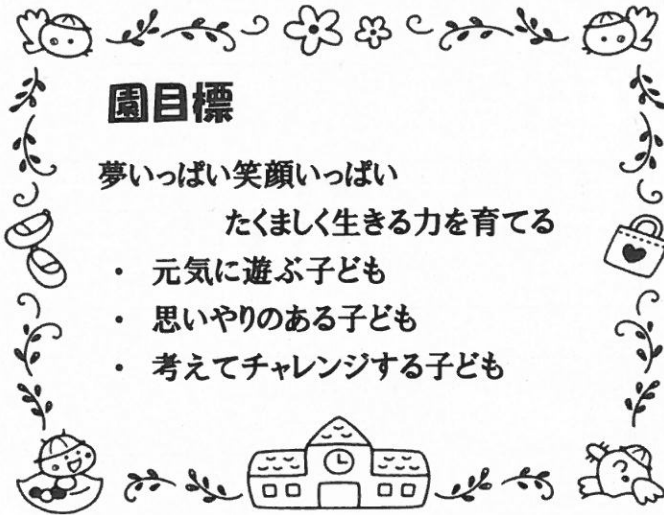 園目標
夢いっぱい笑顔いっぱい
たくましく生きる力を育てる
・ 元気に遊ぶ子ども
・ 思いやりのある子ども
・ 考えてチャレンジする子ども